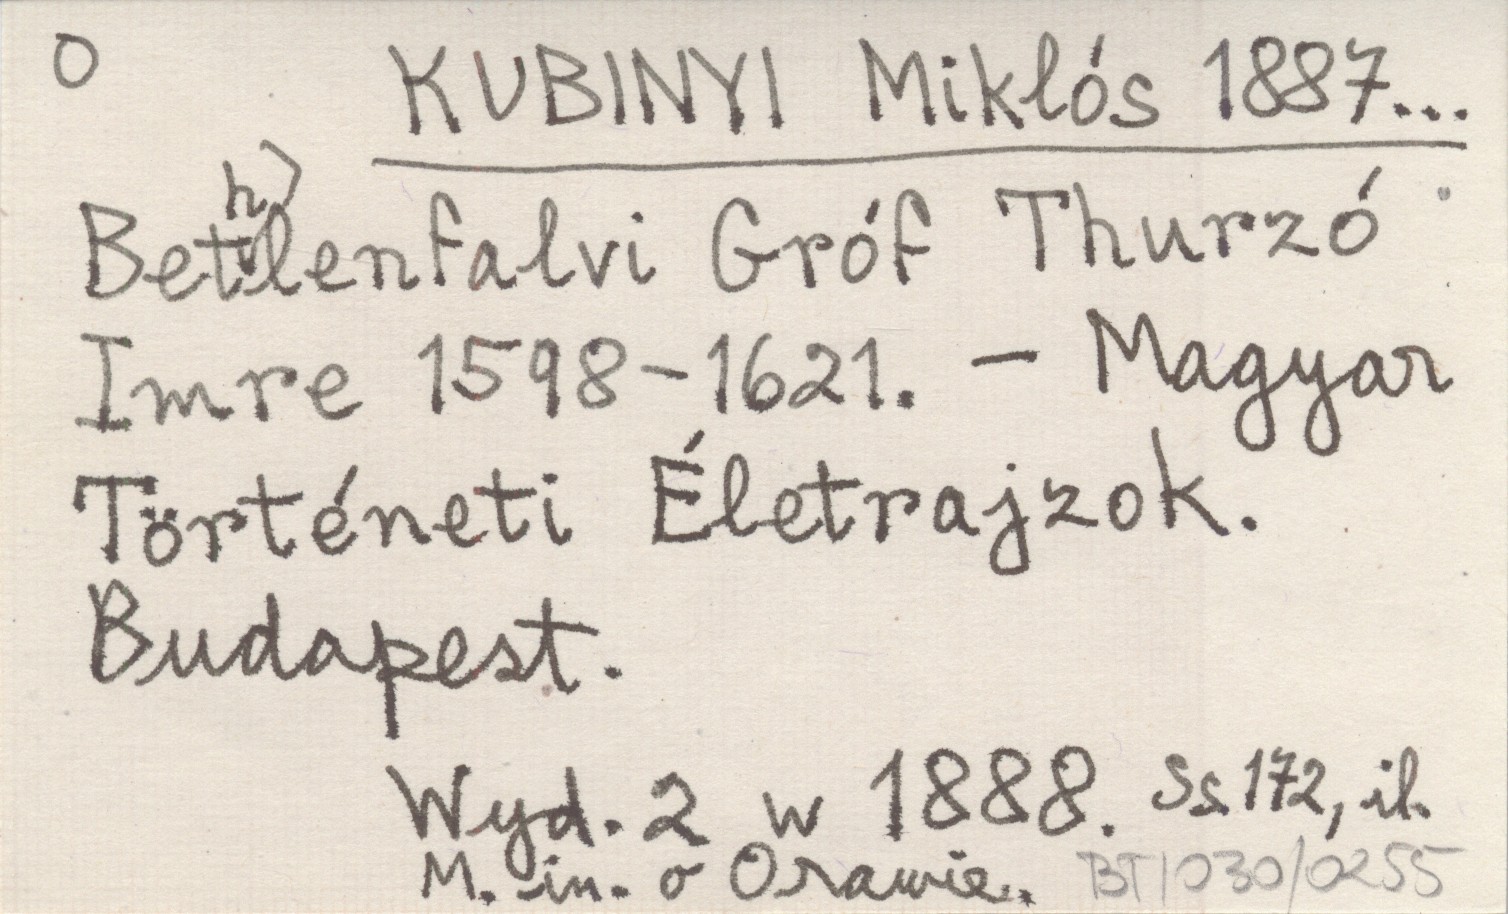 O KUBINYI Miklós 1887...
Bethlenfalvi Gróf Thurzó
Imre 1598-1621. - Magyar
Történeti Életrajzok.
Budapest.
Wyd. 2 w 1888. Ss. 172, il.
M. in. o Orawie. BT/030/0255